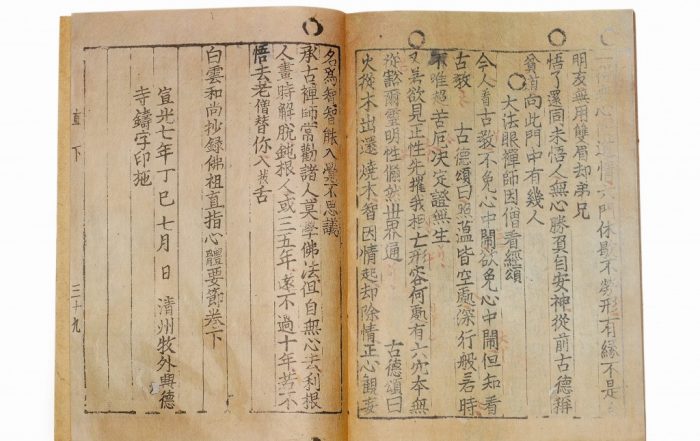 無心道情六門休歇不勞形有緣不是
朋友無用雙眉却弟兄
悟了還同未悟人無心勝負自安神從前古德稱
貧道向此門中有幾人
大法眼禪師因僧看經頌
今人看古教不免心中鬧欲免心中鬧但知看
古教 古德頌曰照蘊皆空處深行般若時
不唯超苦厄決定證無生
又若欲見正性先摧我相亡形容何處有六宂本無
從豁爾靈明性翛然世界通 古德頌曰
火從木出還燒木智因情起却除情正心觀妄
名爲智智能入覺不思議
承古禪師常勸諸人莫學佛法但自無心去利根
人晝時解脫鈍根人或三五年遠不過十年若不
悟去老僧替你入拔舌
白雲和尚抄錄佛祖直指心體要節卷下
宣光七年丁巳七月 日 清州牧外興德
寺鑄字印施
直下 三十九